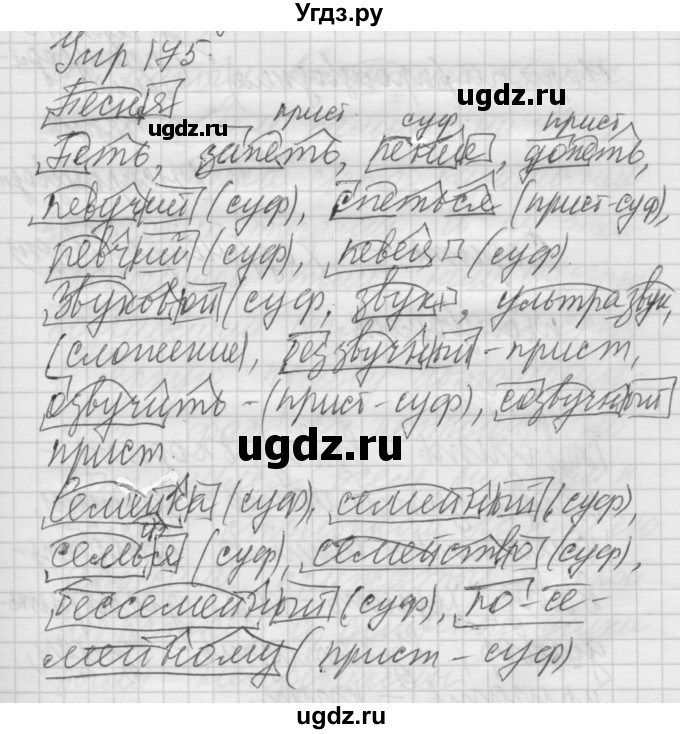 Угдз.ру
Упр 175.
Песня
ugdz.ru
прист. суф. прист.
ugdz.ru
Петь, запеть, пение, допеть,
певучий (суф), спеться (прист-суф),
певчий (суф), певец (суф).
Звуковой (суф, звук, ультразвук,
(сложение), беззвучный - прист,
озвучить - (прист-суф), созвучный
ugdz.ru
прист.
Семейка (суф), семейный (суф),
семья (суф), семейство (суф),
ugdz.ru
бессемейный (суф), по-се-
мейному (прист-суф)
ugdz.ru